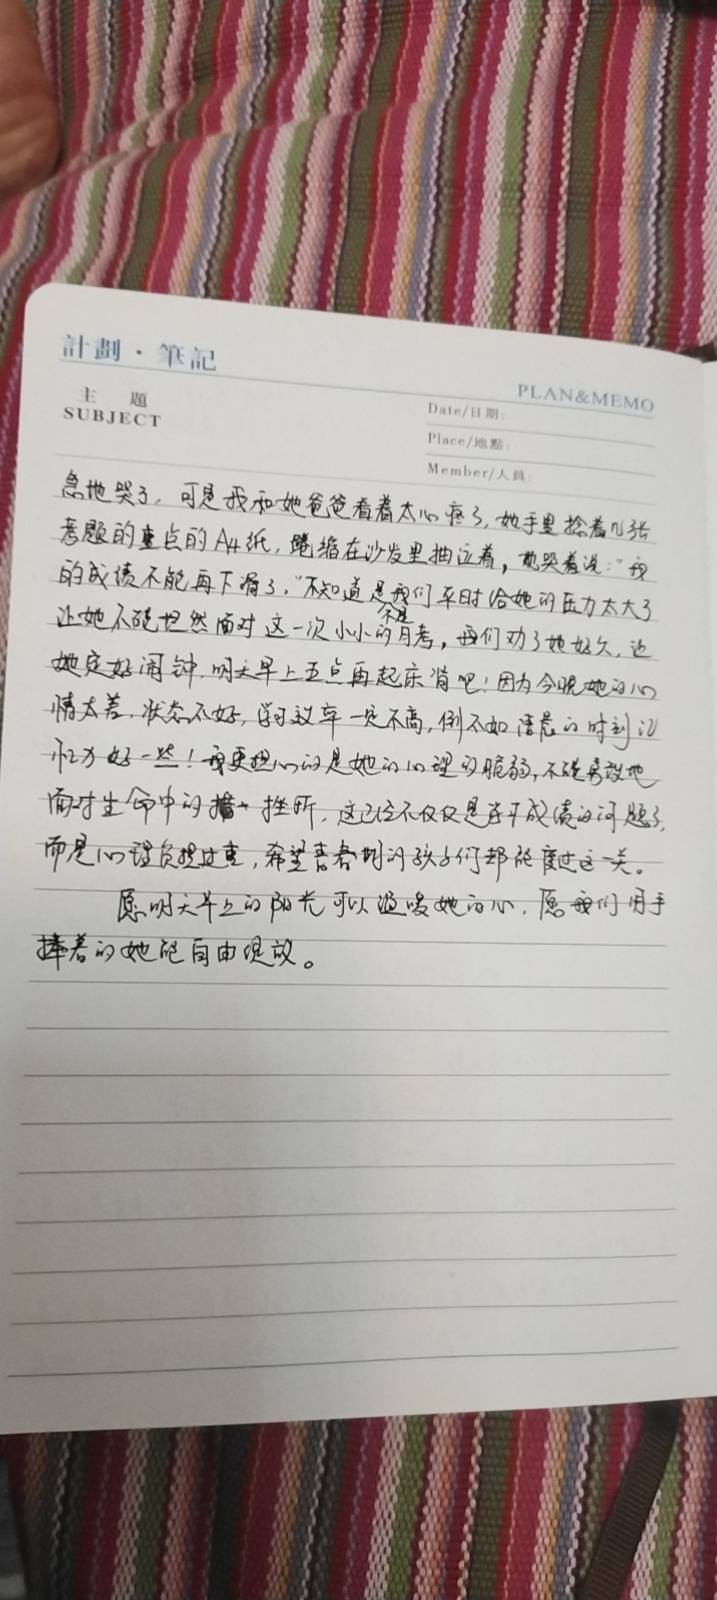 計劃·筆記
PLAN&MEMO
主題
SUBJECT
Date/日期:
Place/地點:
Member/人員:
急地哭了，可是我和她爸爸看着太心疼了，她手里捻着几张
考题的重点的A4纸，蜷缩在沙发里抽泣着，她哭着说：“我
的成绩不能再下滑了。”不知道是不是我们平时给她的压力太大了
让她不能坦然面对这一次小小的月考，我们劝了她好久，让
她定好闹钟，明天早上五点再起床背吧！因为今晚她的心
情太差，状态不好，学习效率一定不高，倒不如清晨的时刻记
忆力好一些！我更担心的是她的心理的脆弱，不能勇敢地
面对生命中的挫折，这已经不仅仅是关乎成绩的问题了，
而是心理负担过重，希望青春期的孩子们都能度过这一关。
愿明天早上的阳光可以温暖她的心，愿我们用手
捧着的她能自由绽放。